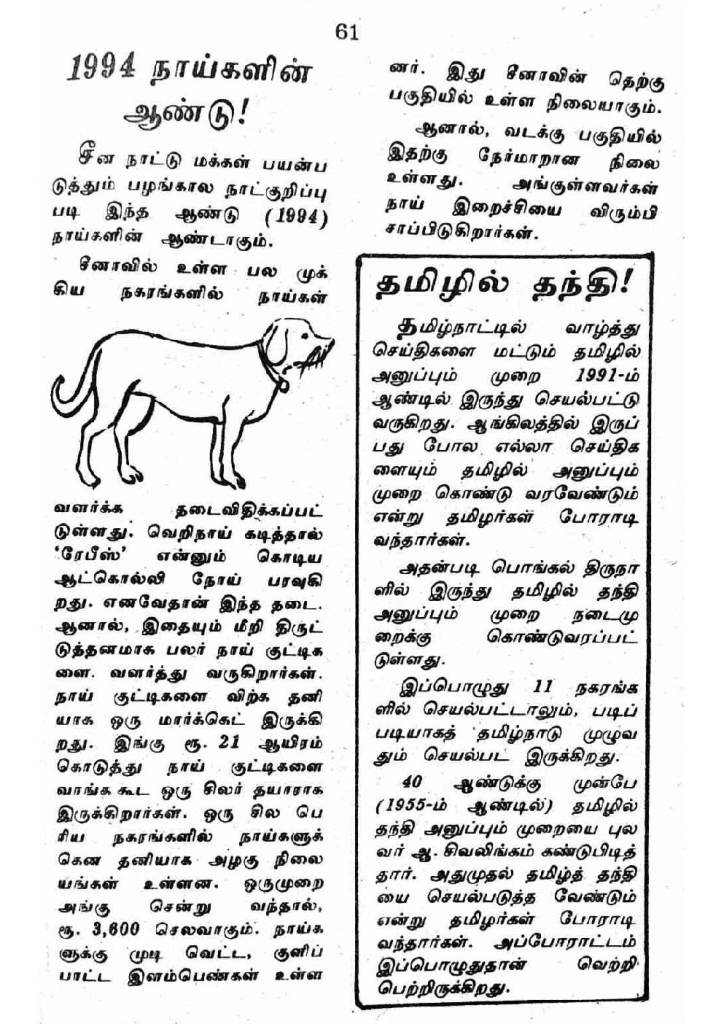 61
1994 நாய்களின்
ஆண்டு!
சீன நாட்டு மக்கள் பயன்ப
டுத்தும் பழங்கால நாட்குறிப்பு
படி இந்த ஆண்டு (1994)
நாய்களின் ஆண்டாகும்.
சீனாவில் உள்ள பல முக்
கிய நகரங்களில் நாய்கள்
வளர்க்க தடைவிதிக்கப்பட்
டுள்ளது. வெறிநாய் கடித்தால்
'ரேபீஸ்' என்னும் கொடிய
ஆட்கொல்லி நோய் பரவுகி
றது. எனவேதான் இந்த தடை.
ஆனால், இதையும் மீறி திருட்
டுத்தனமாக பலர் நாய் குட்டிக
ளை. வளர்த்து வருகிறார்கள்.
நாய் குட்டிகளை விற்க தனி
யாக ஒரு மார்க்கெட் இருக்கி
றது. இங்கு ரூ. 21 ஆயிரம்
கொடுத்து நாய் குட்டிகளை
வாங்க கூட ஒரு சிலர் தயாராக
இருக்கிறார்கள். ஒரு சில பெ
ரிய நகரங்களில் நாய்களுக்
கென தனியாக அழகு நிலை
யங்கள் உள்ளன. ஒருமுறை
அங்கு சென்று வந்தால்,
ரூ. 3,600 செலவாகும். நாய்க
ளுக்கு முடி வெட்ட, குளிப்
பாட்ட இளம்பெண்கள் உள்ள
னர். இது சீனாவின் தெற்கு
பகுதியில் உள்ள நிலையாகும்.
ஆனால், வடக்கு பகுதியில்
இதற்கு நேர்மாறான நிலை
உள்ளது. அங்குள்ளவர்கள்
நாய் இறைச்சியை விரும்பி
சாப்பிடுகிறார்கள்.
தமிழில் தந்தி!
தமிழ்நாட்டில் வாழ்த்து
செய்திகளை மட்டும் தமிழில்
அனுப்பும் முறை 1991-ம்
ஆண்டில் இருந்து செயல்பட்டு
வருகிறது. ஆங்கிலத்தில் இருப்
பது போல எல்லா செய்திக
ளையும் தமிழில் அனுப்பும்
முறை கொண்டு வரவேண்டும்
என்று தமிழர்கள் போராடி
வந்தார்கள்.
அதன்படி பொங்கல் திருநா
ளில் இருந்து தமிழில் தந்தி
அனுப்பும் முறை நடைமு
றைக்கு கொண்டுவரப்பட்
டுள்ளது.
இப்பொழுது 11 நகரங்க
ளில் செயல்பட்டாலும், படிப்
படியாகத் தமிழ்நாடு முழுவ
தும் செயல்பட இருக்கிறது.
40 ஆண்டுக்கு முன்பே
(1955-ம் ஆண்டில்) தமிழில்
தந்தி அனுப்பும் முறையை புல
வர் ஆ. சிவலிங்கம் கண்டுபிடித்
தார். அதுமுதல் தமிழ்த் தந்தி
யை செயல்படுத்த வேண்டும்
என்று தமிழர்கள் போராடி
வந்தார்கள். அப்போராட்டம்
இப்பொழுதுதான் வெற்றி
பெற்றிருக்கிறது.